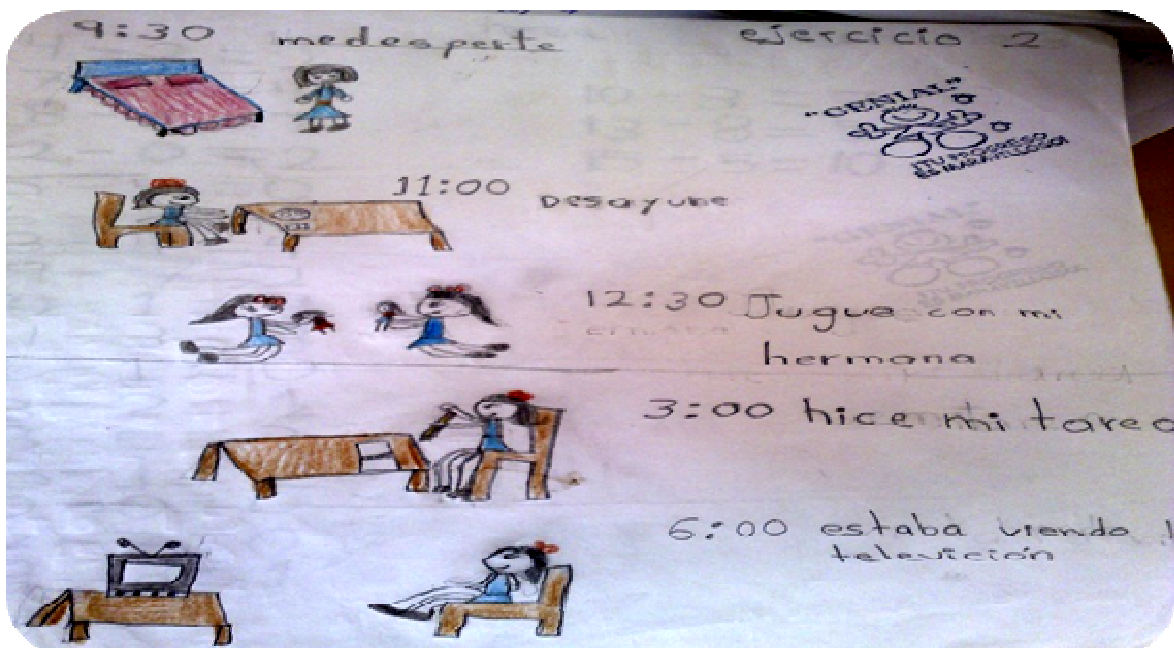 9:30 me desperte
ejercicio 2
"GENIAL"
¡TU PROGRESO
ES MARAVILLOSO!
11:00 Desayune
12:30 Jugue con mi
hermana
3:00 hice mi tarea
6:00 estaba viendo
televición